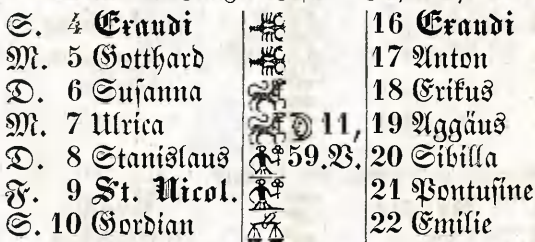 S. 4 Exaudi 16 Exaudi
M. 5 Gotthard 17 Anton
D. 6 Suſanna 18 Erikus
M. 7 Ulrica 11, 19 Aggäus
D. 8 Stanislaus 59.V. 20 Sibilla
F. 9 St. Nicol. 21 Pontuſine
S. 10 Gordian 22 Emilie